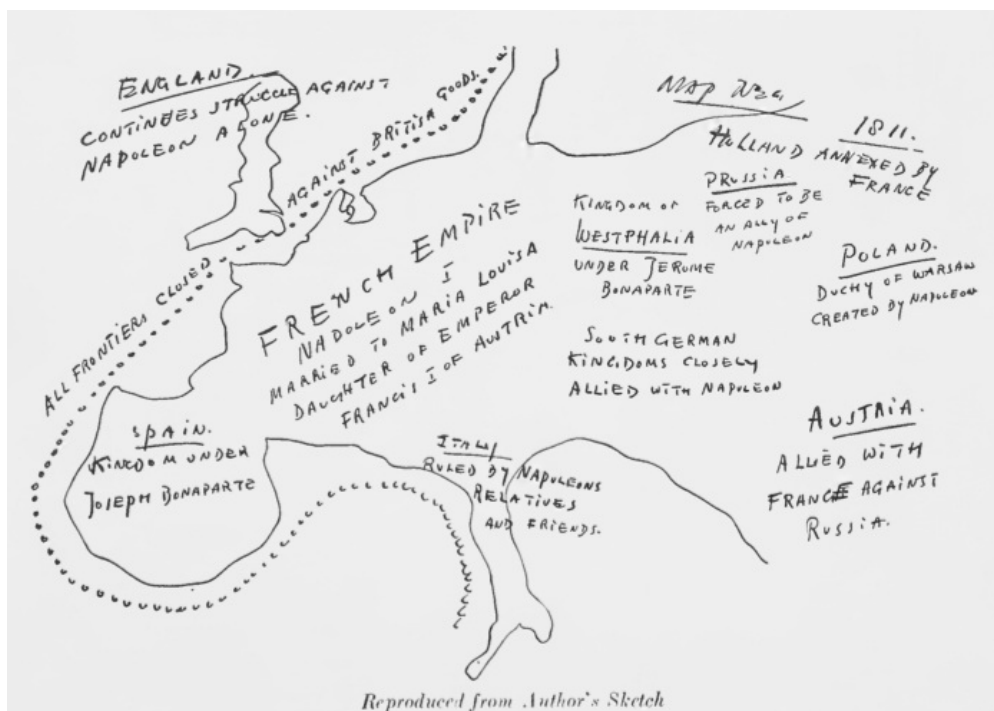 ENGLAND.
CONTINUES STRUGGLE AGAINST
NAPOLEON ALONE.
ALL FRONTIERS CLOSED AGAINST BRITISH GOODS.
MAP
1811.
HOLLAND ANNEXED BY
FRANCE
PRUSSIA
FORCED TO BE
AN ALLY OF
NAPOLEON
KINGDOM OF
WESTPHALIA
UNDER JEROME
BONAPARTE
POLAND.
DUCHY OF WARSAW
CREATED BY NAPOLEON
FRENCH EMPIRE
NAPOLEON I
MARRIED TO MARIA LOUISA
DAUGHTER OF EMPEROR
FRANCIS I OF AUSTRIA.
SOUTH GERMAN
KINGDOMS CLOSELY
ALLIED WITH NAPOLEON
SPAIN.
KINGDOM UNDER
JOSEPH BONAPARTE
ITALY
RULED BY NAPOLEONS
RELATIVES
AND FRIENDS.
AUSTRIA.
ALLIED WITH
FRANCE AGAINST
RUSSIA.
Reproduced from Author's Sketch